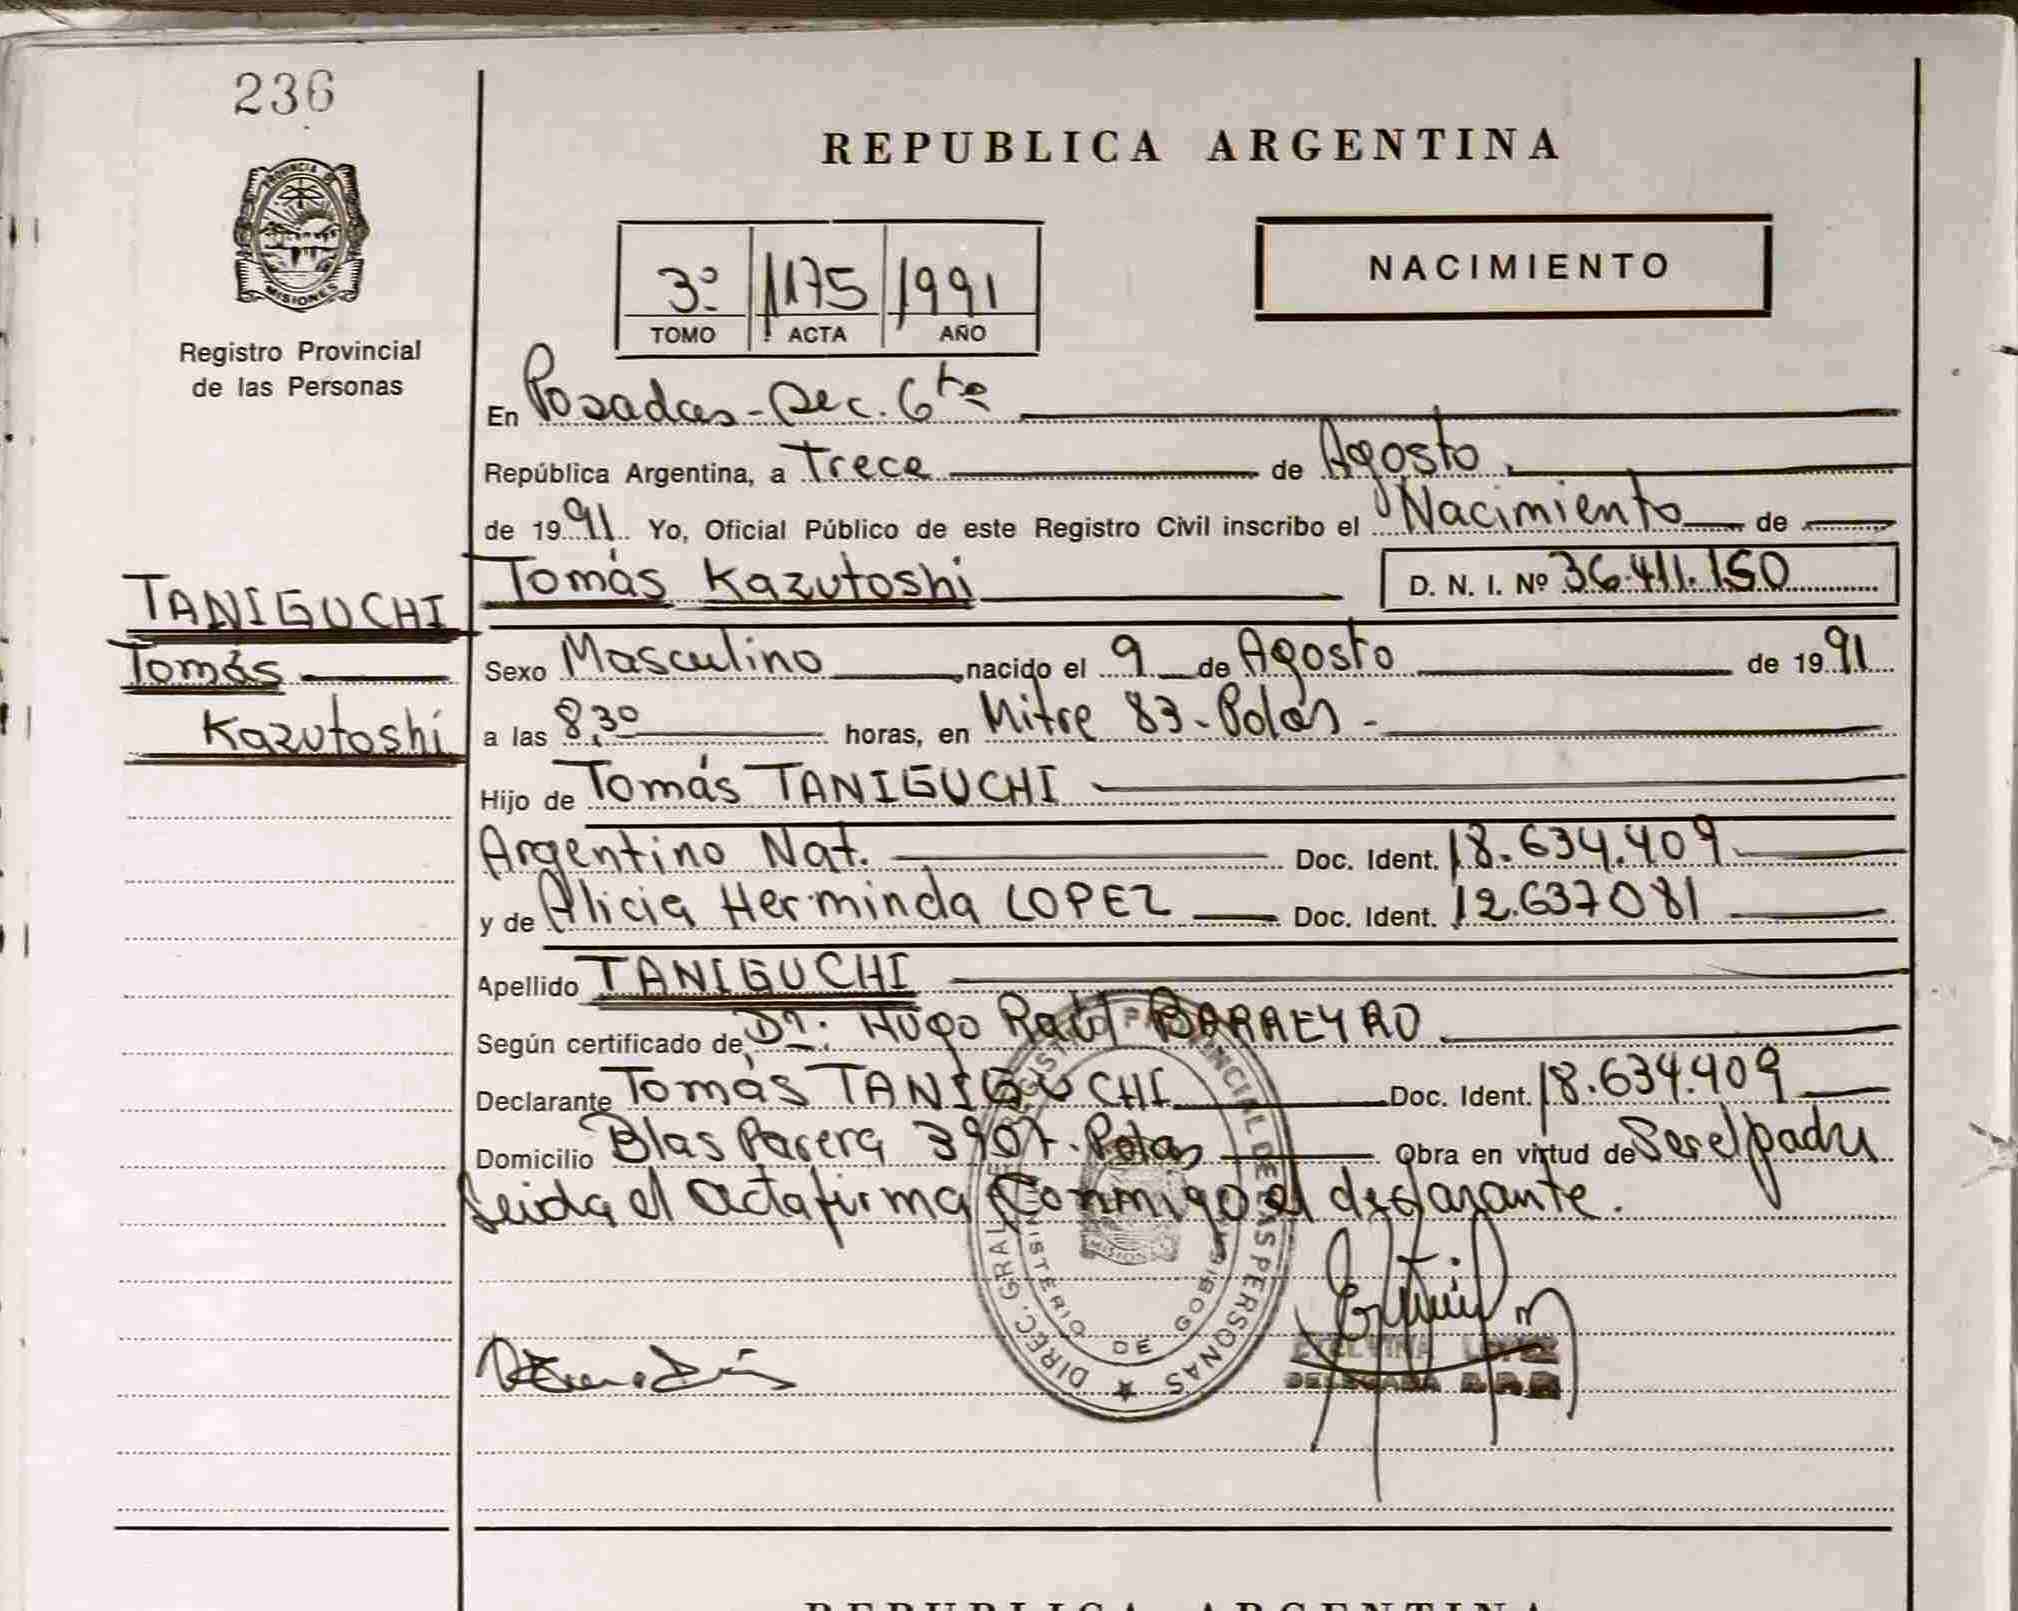 236
REPUBLICA ARGENTINA
PROVINCIA DE
MISIONES
3º 1175 1991
TOMO ACTA AÑO
NACIMIENTO
Registro Provincial
de las Personas
En Posadas - Sec. 6ta
República Argentina, a Trece de Agosto
de 1991 Yo, Oficial Público de este Registro Civil inscribo el Nacimiento de
Tomás Kazutoshi D. N. I. Nº 36.411.150
TANIGUCHI
Tomás
Kazutoshi
Sexo Masculino, nacido el 9 de Agosto de 1991
a las 8,30 horas, en Mitre 83 - Pdas -
Hijo de Tomás TANIGUCHI
Argentino Nat. Doc. Ident. 18.634.409
y de Alicia Herminda LOPEZ Doc. Ident. 12.637081
Apellido TANIGUCHI
Según certificado de, Dr. Hugo Raúl BARREYRO
Declarante Tomás TANIGUCHI Doc. Ident. 18.634.409
Domicilio Blas Parera 3907. Pdas Obra en virtud de Ser el padre
Leida el acta firma conmigo el declarante.
DIREC. GRAL. REGISTRO PROVINCIAL DE LAS PERSONAS
MINISTERIO DE GOBIERNO
MISIONES
ETELVINA LOPEZ
DELEGADA
REPUBLICA ARGENTINA